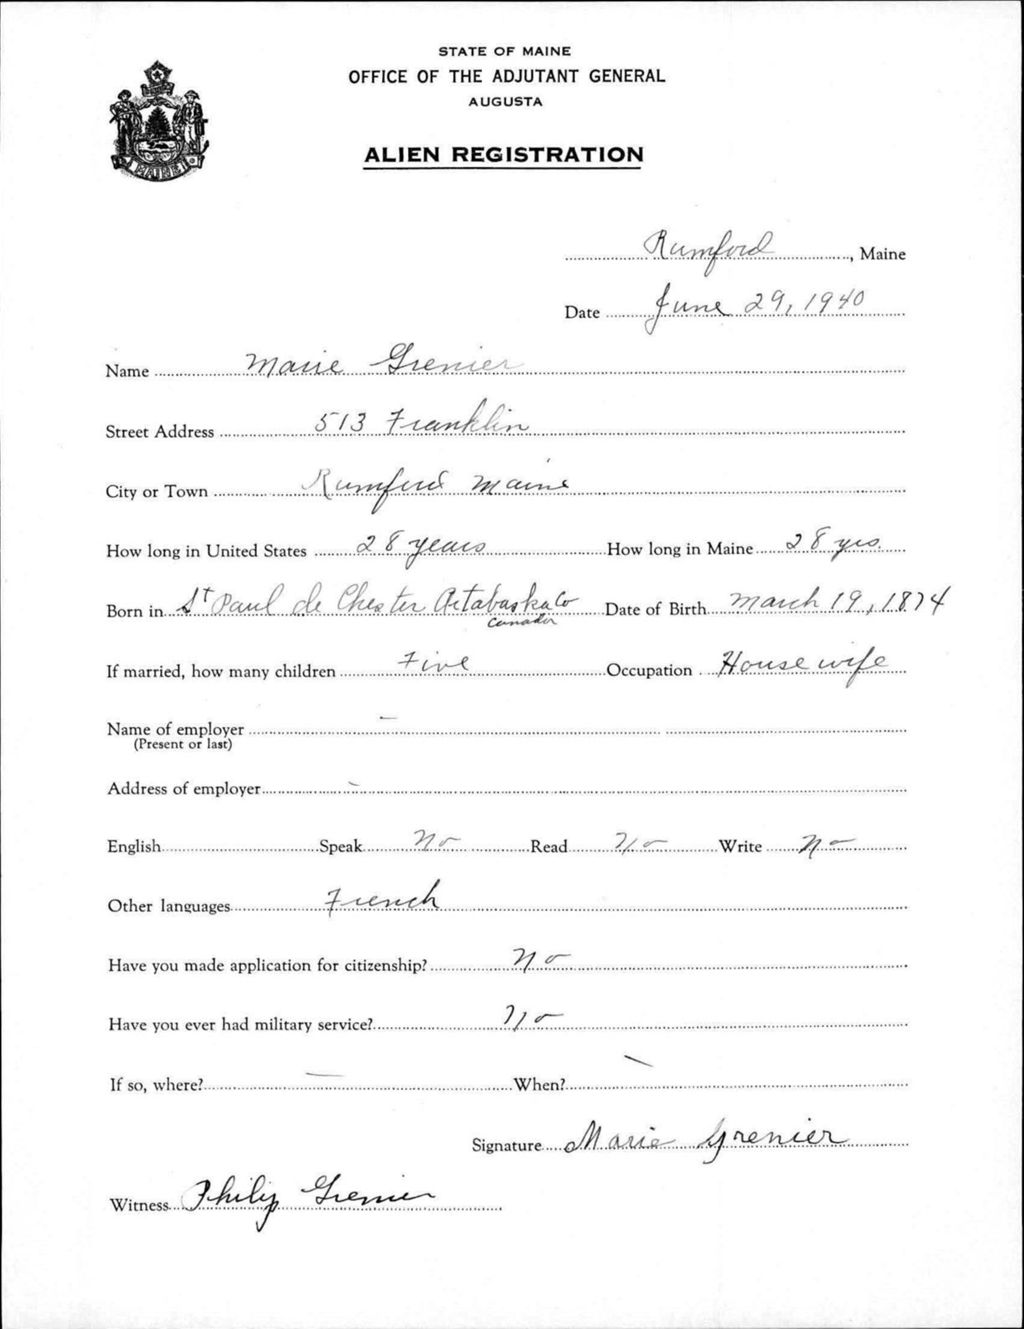 STATE OF MAINE
OFFICE OF THE ADJUTANT GENERAL
AUGUSTA
ALIEN REGISTRATION
MAINE
Rumford, Maine
Date June 29, 1940
Name Marie Grenier
Street Address 513 Franklin
City or Town Rumford Maine
How long in United States 28 years How long in Maine 28 yrs.
Born in St Paul de Chester Artabaska Co Date of Birth March 19, 1874
Canada
If married, how many children Five Occupation Housewife
Name of employer –
(Present or last)
Address of employer –
English Speak No Read No Write No
Other languages French
Have you made application for citizenship? No
Have you ever had military service? No
If so, where? — When? —
Signature Marie Grenier
Witness Philip Grenier